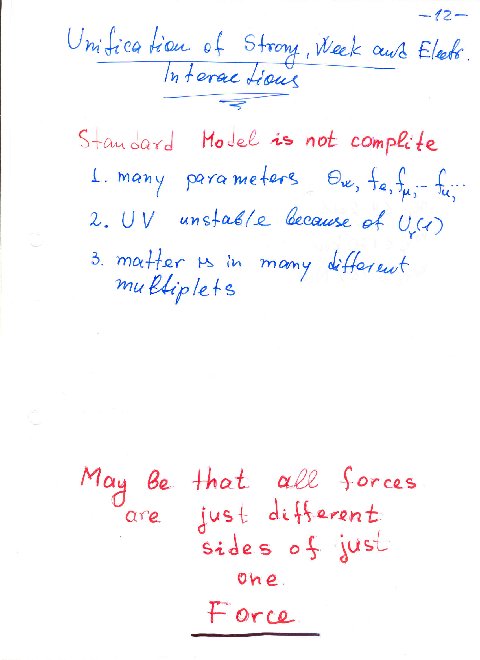 -12-
Unification of Strong, Week and Electr.
Interactions
Standard Model is not complite
1. many parameters θw, fe, fμ, - fu, ...
2. UV unstable because of Uγ(1)
3. matter is in many different
multiplets
May be that all forces
are just different
sides of just
one
Force